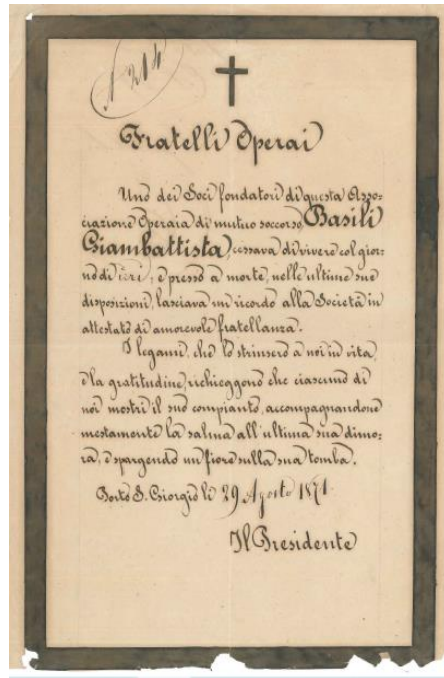 N 204
Fratelli Operai
Uno dei Soci fondatori di questa Asso=
ciazione Operaia di mutuo soccorso, Basili
Giambattista, cessava di vivere col gior=
no di ieri, e presso a morte, nelle ultime sue
disposizioni, lasciava un ricordo alla Società in
attestato di amorevole fratellanza.
I legami, che lo strinsero a noi in vita,
e la gratitudine, richieggono che ciascuno di
noi mostri il suo compianto, accompagnandone
mestamente la salma all'ultima sua dimo=
ra, e spargendo un fiore sulla sua tomba.
Porto S. Giorgio li 29 Agosto 1871.
Il Presidente